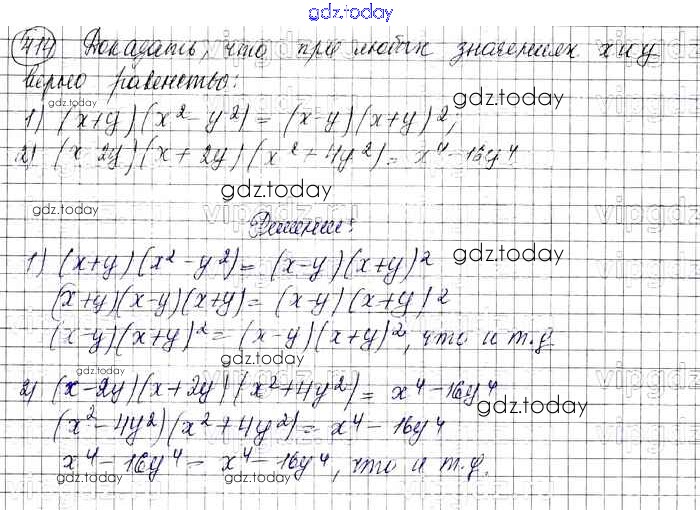 gdz.today
414 Доказать, что при любых значениях x и y
верно равенство:
gdz.today
1) (x+y)(x² - y²) = (x-y)(x+y)²;
gdz.today
2) (x-2y)(x+2y)(x²+4y²) = x⁴-16y⁴
gdz.today
gdz.today
Решение:
gdz.today
1) (x+y)(x²-y²) = (x-y)(x+y)²
(x+y)(x-y)(x+y) = (x-y)(x+y)²
(x-y)(x+y)² = (x-y)(x+y)², что и т.д
gdz.today
gdz.today
2) (x-2y)(x+2y)(x²+4y²) = x⁴-16y⁴
gdz.today
(x²-4y²)(x²+4y²) = x⁴-16y⁴
gdz.today
x⁴-16y⁴ = x⁴-16y⁴, что и т.д.
gdz.today